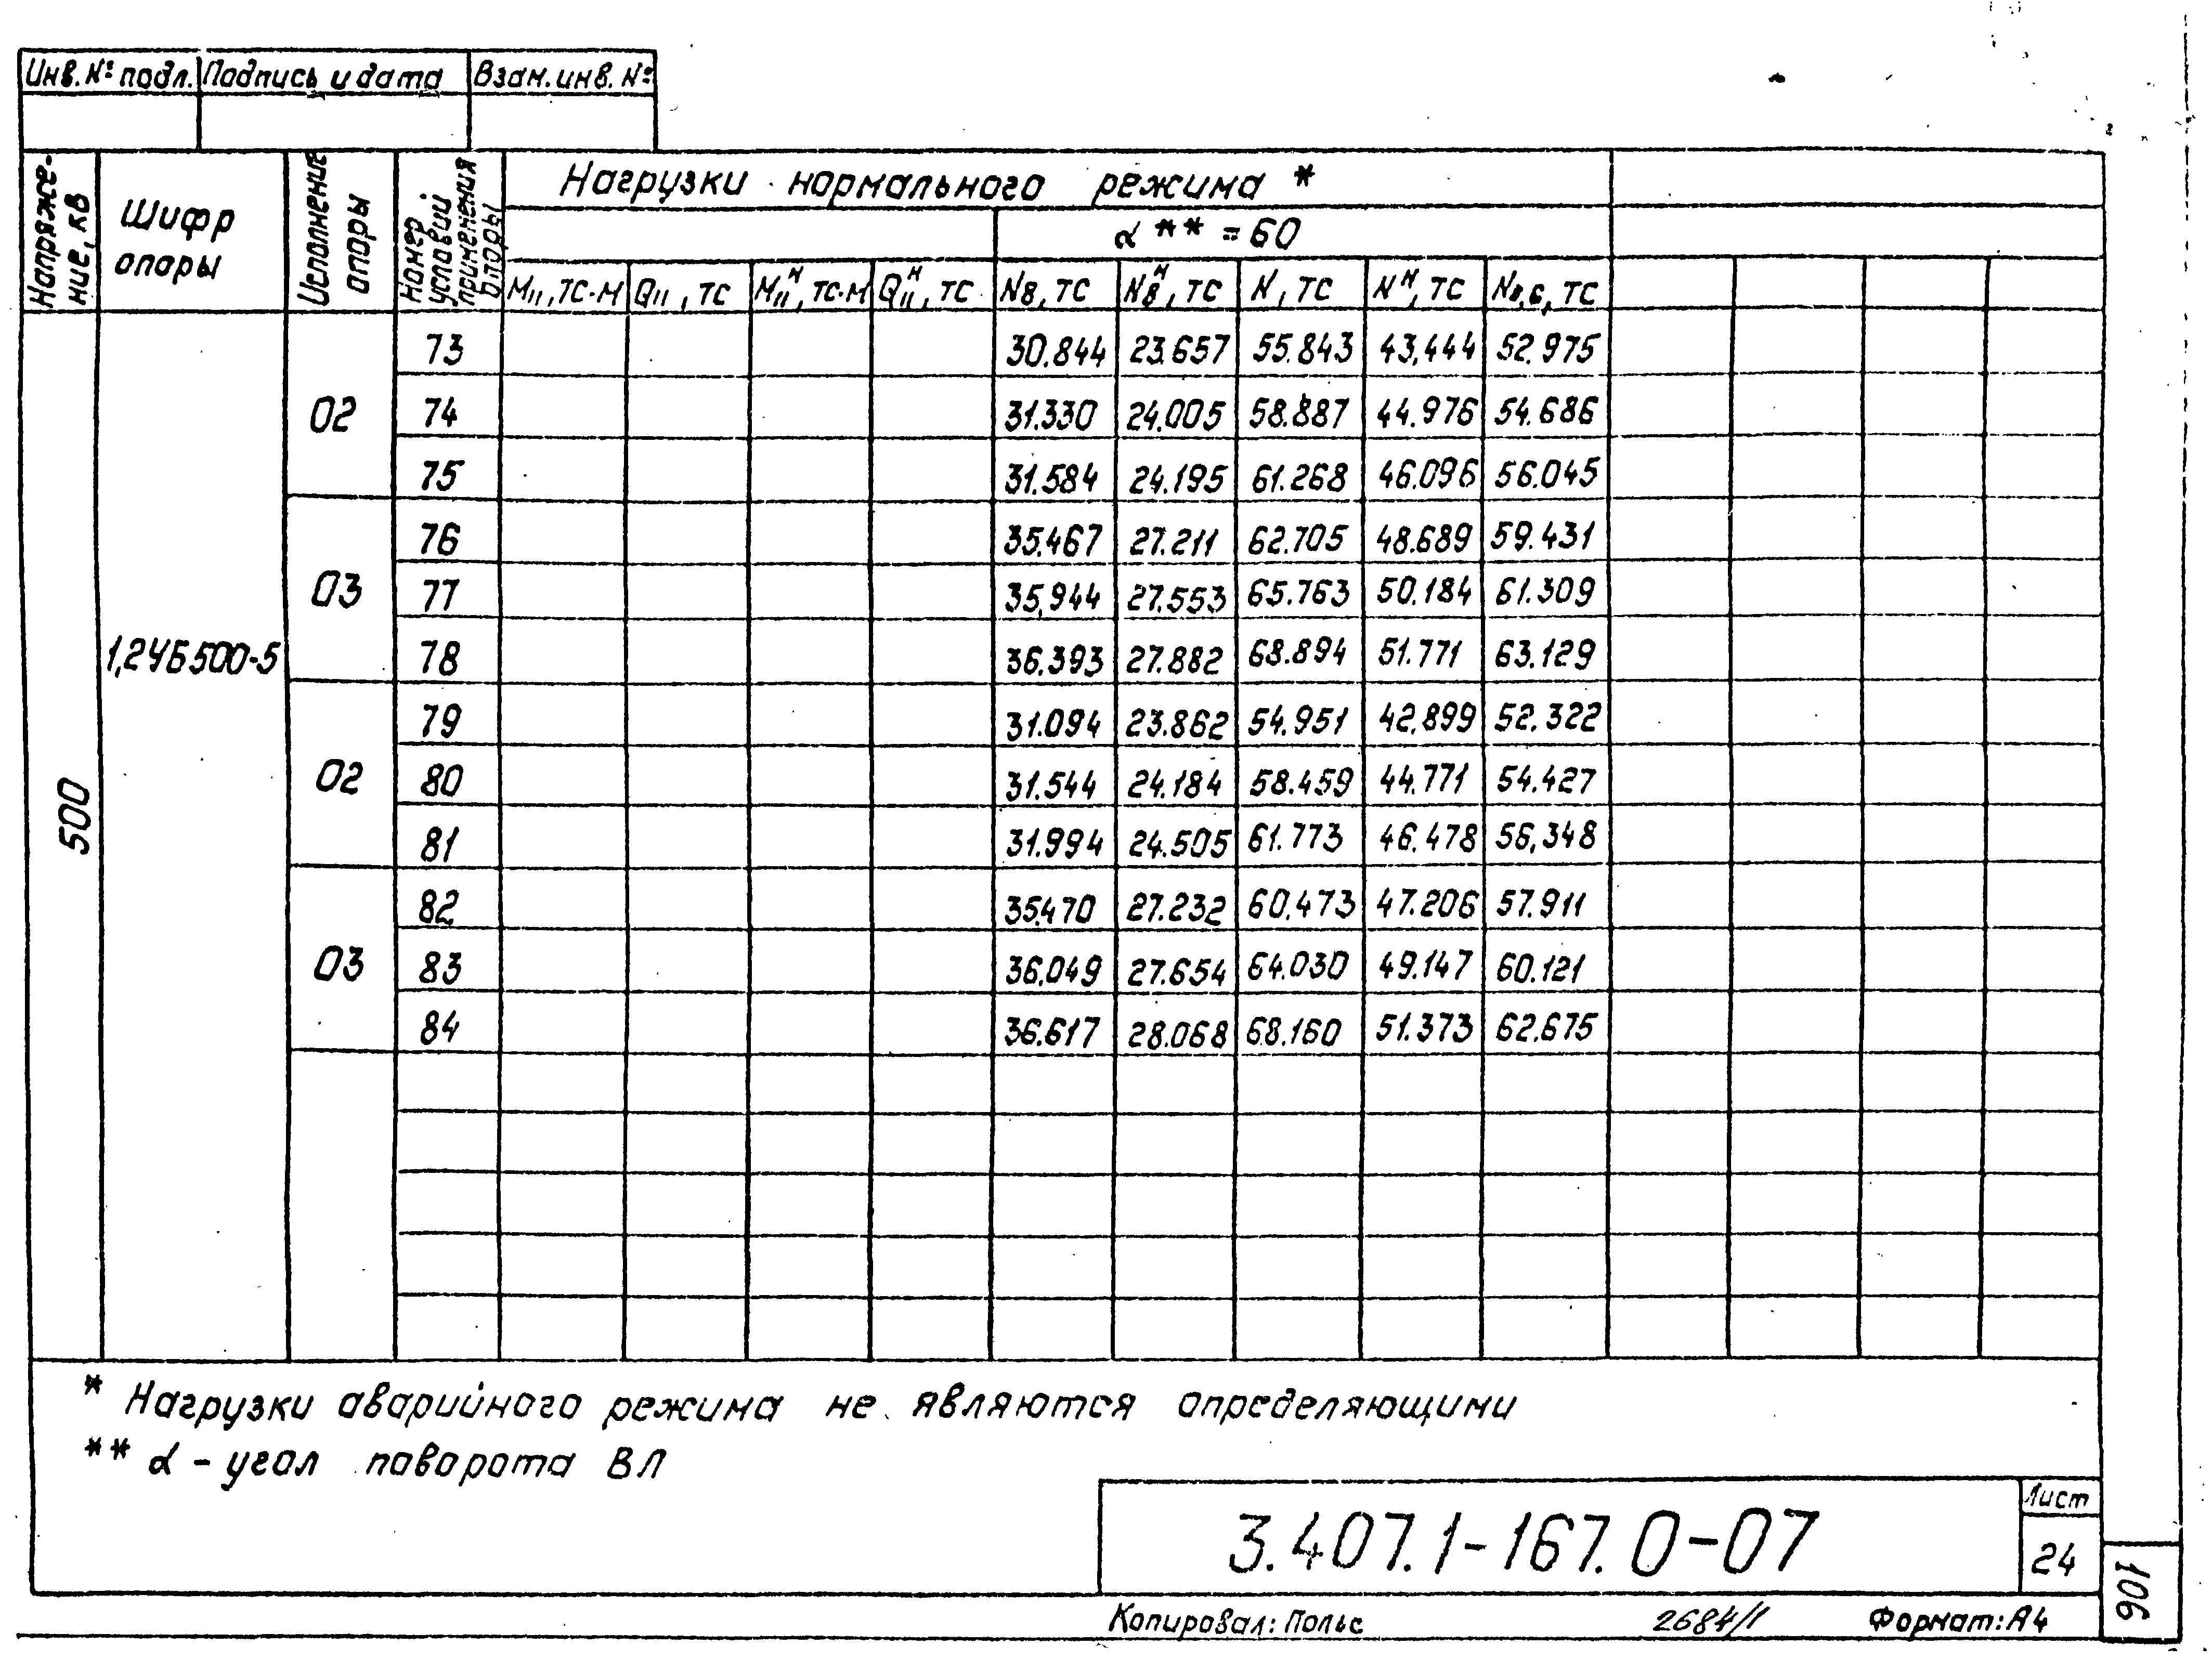 Инв. № подл. Подпись и дата Взам. инв. №
Напряже-
ние, кв
Шифр
опоры
Исполнение
опоры
Номер
условий
применения
опоры
Нагрузки нормального режима *
α ** = 60
M॥, тс·м Q॥, тс M॥ᴴ, тс·м Q॥ᴴ, тс Nв, тс Nвᴴ, тс N, тс Nᴴ, тс
500
1,2УБ500-5
02
73 30.844 23.657 55.843 43,444 52.975
74 31.330 24.005 58.887 44.976 54.686
75 31.584 24.195 61.268 46.096 56.045
03
76 35.467 27.211 62.705 48.689 59.431
77 35,944 27.553 65.763 50.184 61.309
78 36.393 27.882 68.894 51.771 63.129
02
79 31.094 23.862 54.951 42.899 52.322
80 31.544 24.184 58.459 44.771 54.427
81 31.994 24.505 61.773 46.478 56,348
03
82 35.470 27.232 60.473 47.206 57.911
83 36.049 27.654 64.030 49.147 60.121
84 36.617 28.068 68.160 51.373 62.675
* Нагрузки аварийного режима не являются определяющими
** α - угол поворота ВЛ
3.407.1-167.0-07
Лист
24
106
Копировал: Польс 2684/1 Формат: А4